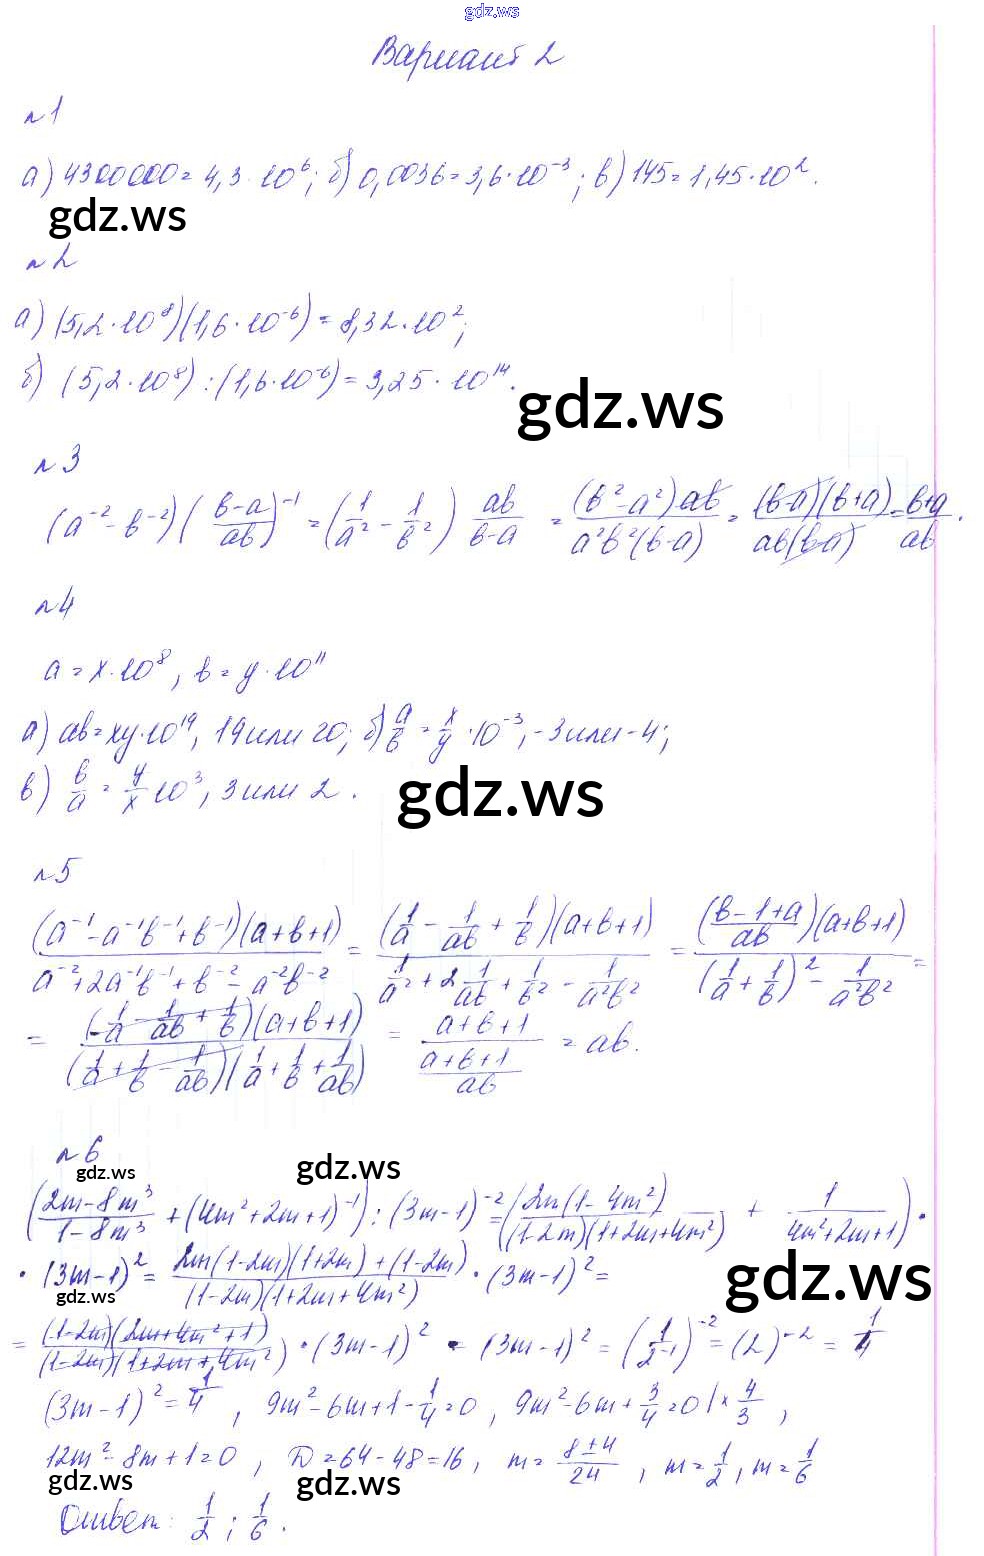 gdz.ws
Вариант 2
n1
а) 4300000 = 4,3 · 10⁶; б) 0,0036 = 3,6 · 10⁻³; в) 145 = 1,45 · 10².
gdz.ws
n2
а) (5,2 · 10⁸)(1,6 · 10⁻⁶) = 8,32 · 10²;
б) (5,2 · 10⁸) : (1,6 · 10⁻⁶) = 3,25 · 10¹⁴.
gdz.ws
n3
(a⁻² - b⁻²)((b-a)/(ab))⁻¹ = (1/a² - 1/b²) ab/(b-a) = (b²-a²)ab/(a²b²(b-a)) = (b-a)(b+a)/(ab(b-a)) = (b+a)/(ab).
n4
a = x · 10⁸, b = y · 10¹¹
а) ab = xy · 10¹⁹, 19 или 20; б) a/b = x/y · 10⁻³, -3 или -4;
в) b/a = y/x 10³, 3 или 2.
gdz.ws
n5
(a⁻¹ - a⁻¹b⁻¹ + b⁻¹)(a+b+1)/(a⁻² + 2a⁻¹b⁻¹ + b⁻² - a⁻²b⁻²) = (1/a - 1/ab + 1/b)(a+b+1)/(1/a² + 2 1/ab + 1/b² - 1/a²b²) = ((b-1+a)/ab)(a+b+1)/((1/a + 1/b)² - 1/a²b²) =
= (1/a - 1/ab + 1/b)(a+b+1)/((1/a + 1/b - 1/ab)(1/a + 1/b + 1/ab)) = (a+b+1)/((a+b+1)/ab) = ab.
n6
gdz.ws
gdz.ws
((2m-8m³)/(1-8m³) + (4m²+2m+1)⁻¹) : (3m-1)⁻² = (2m(1-4m²)/((1-2m)(1+2m+4m²)) + 1/(4m²+2m+1)) ·
· (3m-1)² = (2m(1-2m)(1+2m)+(1-2m))/((1-2m)(1+2m+4m²)) · (3m-1)² =
gdz.ws
gdz.ws
= (1-2m)(2m+4m²+1)/((1-2m)(1+2m+4m²)) · (3m-1)² = (3m-1)² = (1/2⁻¹)⁻² = (2)⁻² = 1/4
(3m-1)² = 1/4, 9m²-6m+1-1/4=0, 9m²-6m+3/4=0 |×4/3,
12m²-8m+1=0, D=64-48=16, m=(8±4)/24, m=1/2, m=1/6
gdz.ws
gdz.ws
Ответ: 1/2; 1/6.